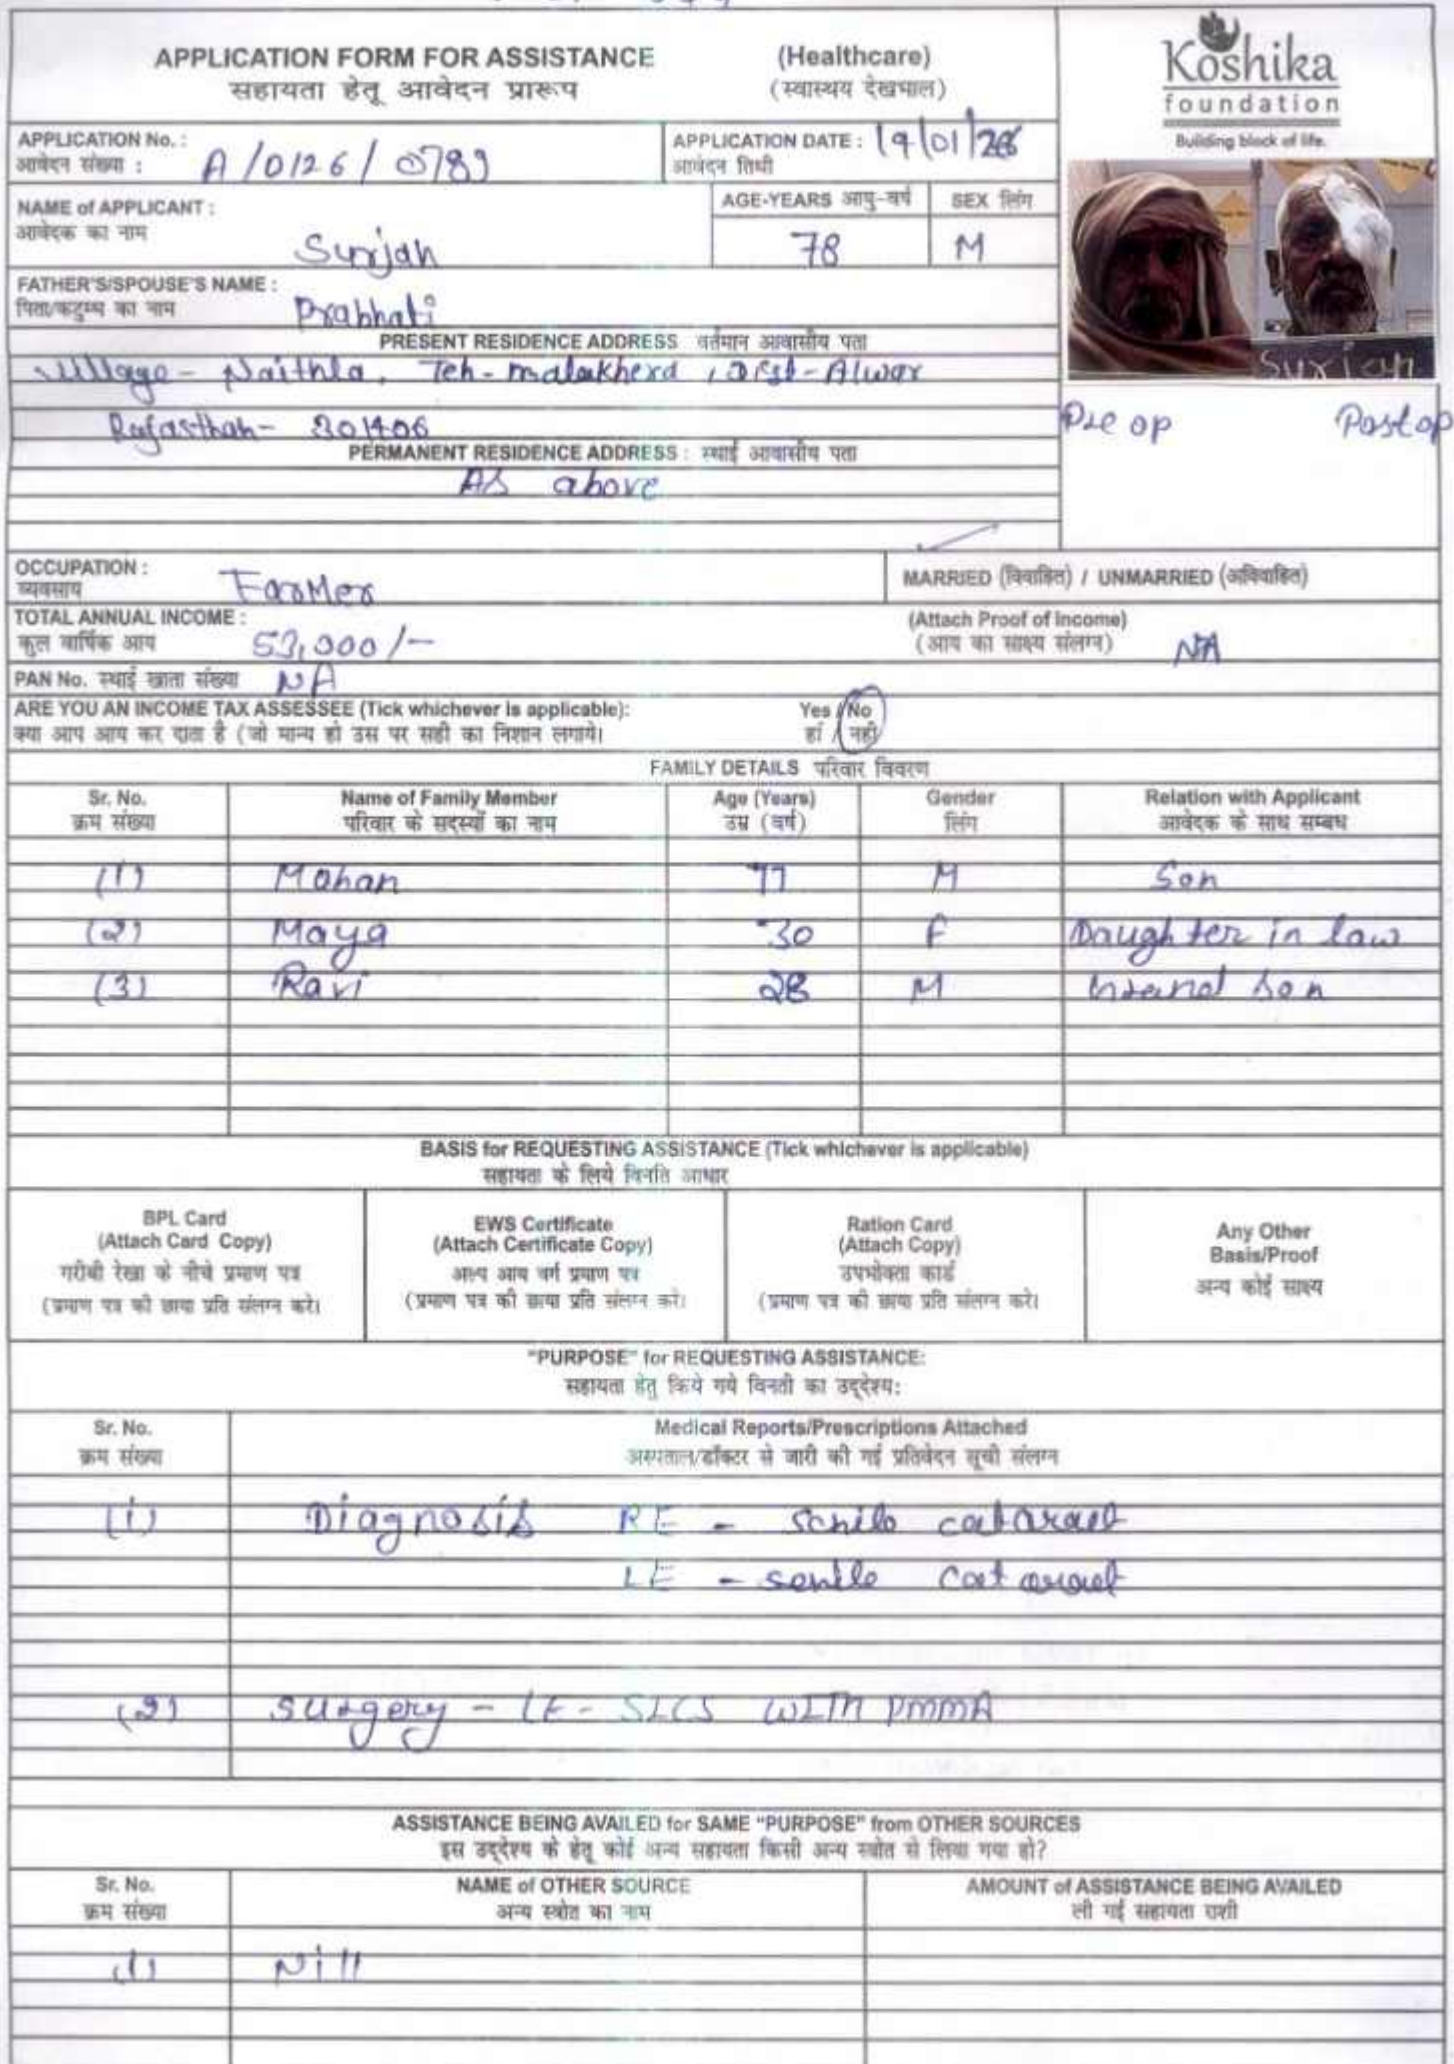 APPLICATION FORM FOR ASSISTANCE (Healthcare)
सहायता हेतू आवेदन प्रारूप (स्वास्थय देखभाल)
Koshika
foundation
Building block of life.
APPLICATION No. : A/0126/0789
आवेदन संख्या :
APPLICATION DATE : 19/01/26
आवेदन तिथी
NAME of APPLICANT : Surjan
आवेदक का नाम
AGE-YEARS आयु-वर्ष 78
SEX लिंग M
FATHER'S/SPOUSE'S NAME : Prabhati
पिता/कटुम्ब का नाम
PRESENT RESIDENCE ADDRESS वर्तमान आवासीय पता
Village - Naithla, Teh - malakhera, Dist - Alwar
Rajasthan - 301406
Surjan
Pre op Post op
PERMANENT RESIDENCE ADDRESS : स्थाई आवासीय पता
As above
OCCUPATION : Farmer
व्यवसाय
MARRIED (विवाहित) / UNMARRIED (अविवाहित)
TOTAL ANNUAL INCOME : 53,000/-
कुल वार्षिक आय
(Attach Proof of Income) NA
(आय का साक्ष्य संलग्न)
PAN No. स्थाई खाता संख्या NA
ARE YOU AN INCOME TAX ASSESSEE (Tick whichever is applicable): Yes / No
क्या आप आय कर दाता है (जो मान्य हो उस पर सही का निशान लगाये। हां / नही
FAMILY DETAILS परिवार विवरण
Sr. No. Name of Family Member Age (Years) Gender Relation with Applicant
क्रम संख्या परिवार के सदस्यों का नाम उम्र (वर्ष) लिंग आवेदक के साथ सम्बध
(1) Mohan M Son
(2) Maya 30 F Daughter in law
(3) Ravi 28 M son
BASIS for REQUESTING ASSISTANCE (Tick whichever is applicable)
सहायता के लिये विनति आधार
BPL Card
(Attach Card Copy)
गरीबी रेखा के नीचे प्रमाण पत्र
(प्रमाण पत्र की छाया प्रति संलग्न करे।
EWS Certificate
(Attach Certificate Copy)
अल्प आय वर्ग प्रमाण पत्र
(प्रमाण पत्र की छाया प्रति संलग्न करे।
Ration Card
(Attach Copy)
उपभोक्ता कार्ड
(प्रमाण पत्र की छाया प्रति संलग्न करे।
Any Other
Basis/Proof
अन्य कोई साक्ष्य
"PURPOSE" for REQUESTING ASSISTANCE:
सहायता हेतु किये गये विनती का उद्देश्य:
Sr. No. Medical Reports/Prescriptions Attached
क्रम संख्या अस्पताल/डॉक्टर से जारी की गई प्रतिवेदन सूची संलग्न
(1) Diagnosis RE - senile cataract
LE - senile cataract
(2) Surgery - LE - SICS WITH PMMA
ASSISTANCE BEING AVAILED for SAME "PURPOSE" from OTHER SOURCES
इस उद्देश्य के हेतू कोई अन्य सहायता किसी अन्य स्त्रोत से लिया गया हो?
Sr. No. NAME of OTHER SOURCE AMOUNT of ASSISTANCE BEING AVAILED
क्रम संख्या अन्य स्त्रोत का नाम ली गई सहायता राशी
(1) Nill